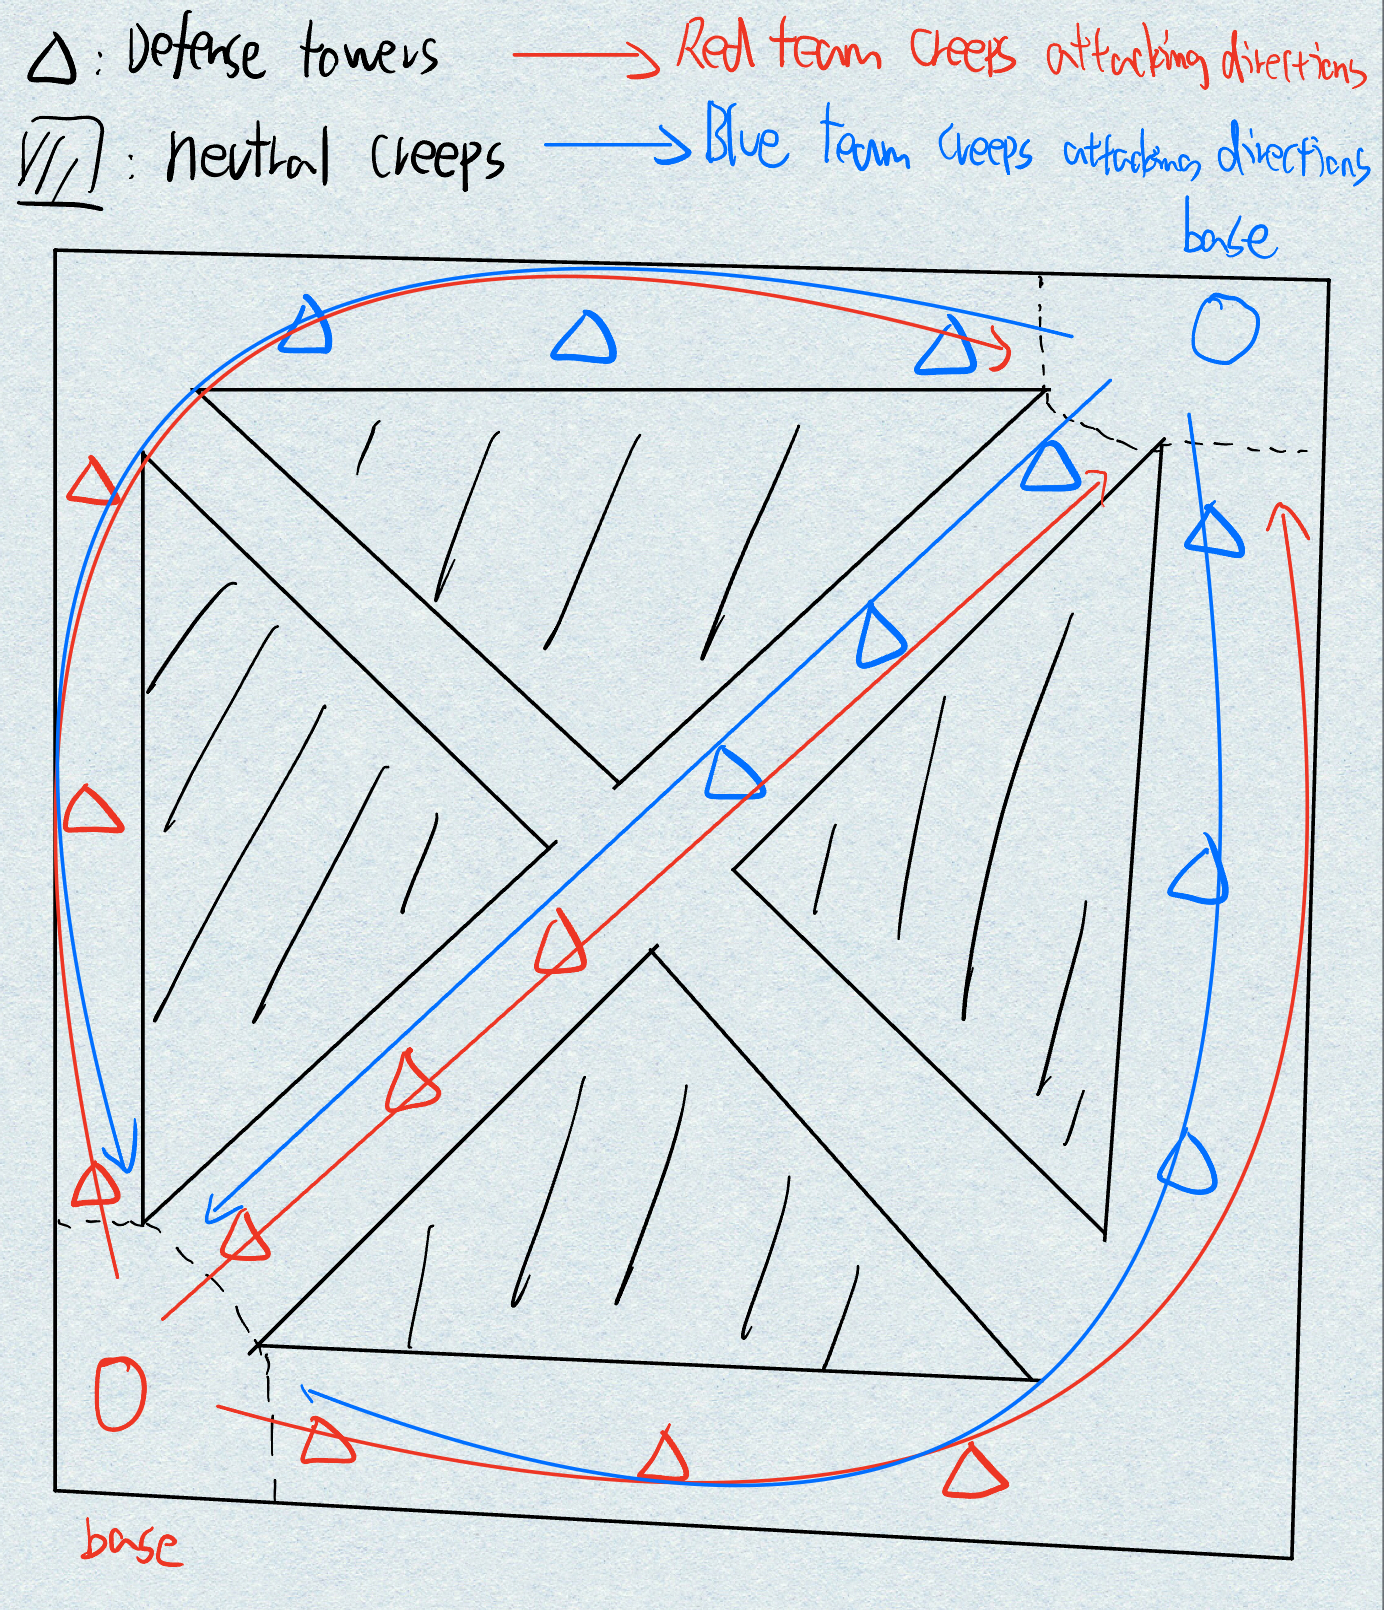 : Defense towers
Red team creeps attacking directions
: neutral creeps
Blue team creeps attacking directions
base
base